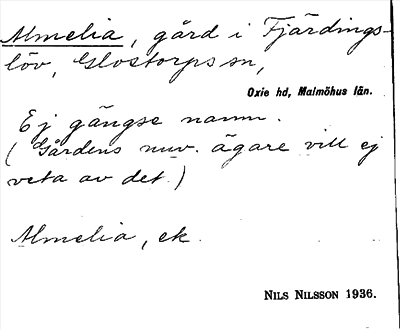 Almelia, gård i Fjärdings-
löv, Glostorps sn,
Oxie hd, Malmöhus län.
Ej gängse namn.
(Gårdens nuv. ägare vill ej
veta av det.)
Almelia, ek.
NILS NILSSON 1936.